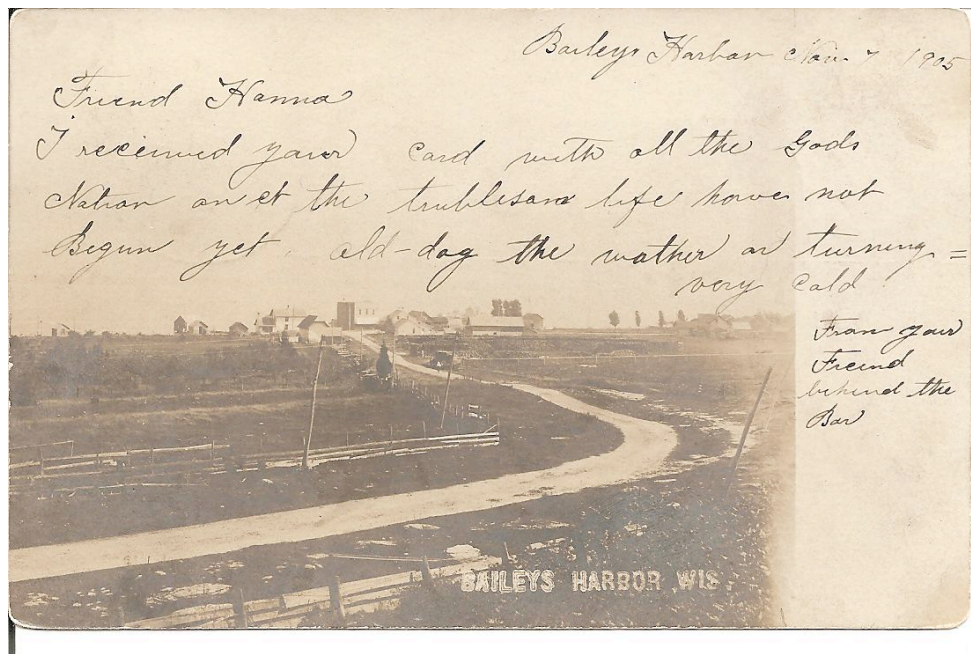 Baileys Harbor Nov. 7 1905
Friend Hanna
I received your card with all the Gods
Nation an et the trublesom life have not
Begun yet. old-dog the wather or turning =
very Cold
From your
Freind
behind the
Bar
BAILEYS HARBOR WIS.